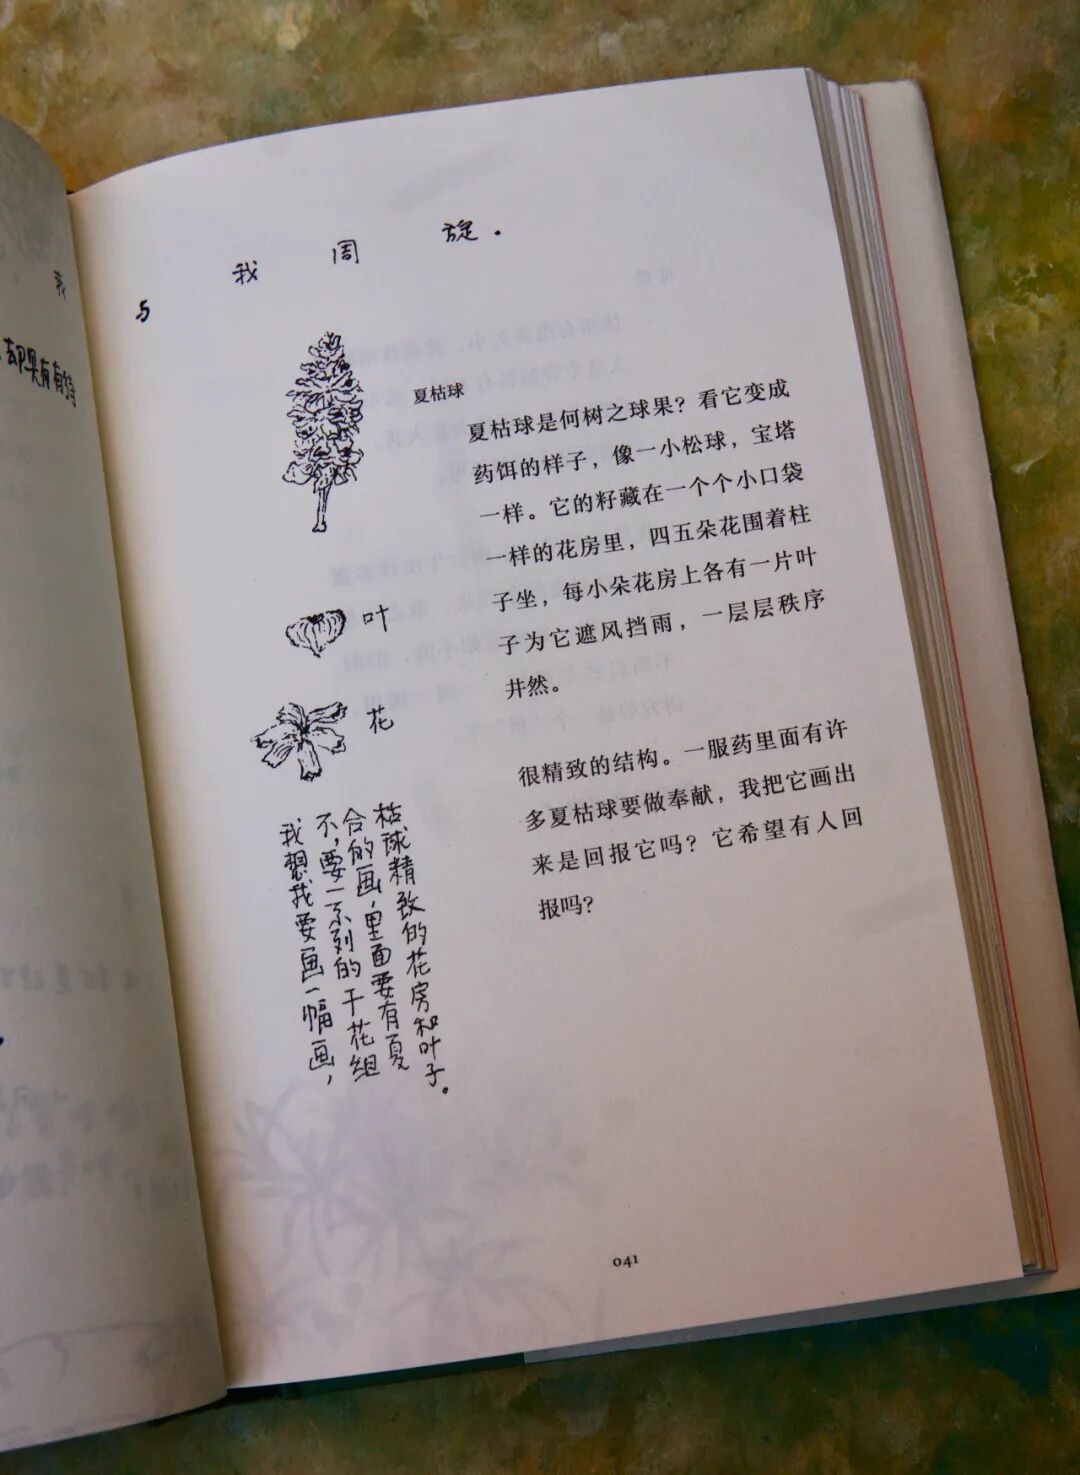 我
却只有有
与 我 周 旋.
夏枯球
夏枯球是何树之球果？看它变成
药饵的样子，像一小松球，宝塔
一样。它的籽藏在一个个小口袋
一样的花房里，四五朵花围着柱
子坐，每小朵花房上各有一片叶
子为它遮风挡雨，一层层秩序
井然。
叶
花
很精致的结构。一服药里面有许
多夏枯球要做奉献，我把它画出
来是回报它吗？它希望有人回
报吗？
我想我要画一幅画，
不，要一系列的干花组
合的画，里面要有夏
枯球精致的花房和叶子。
041